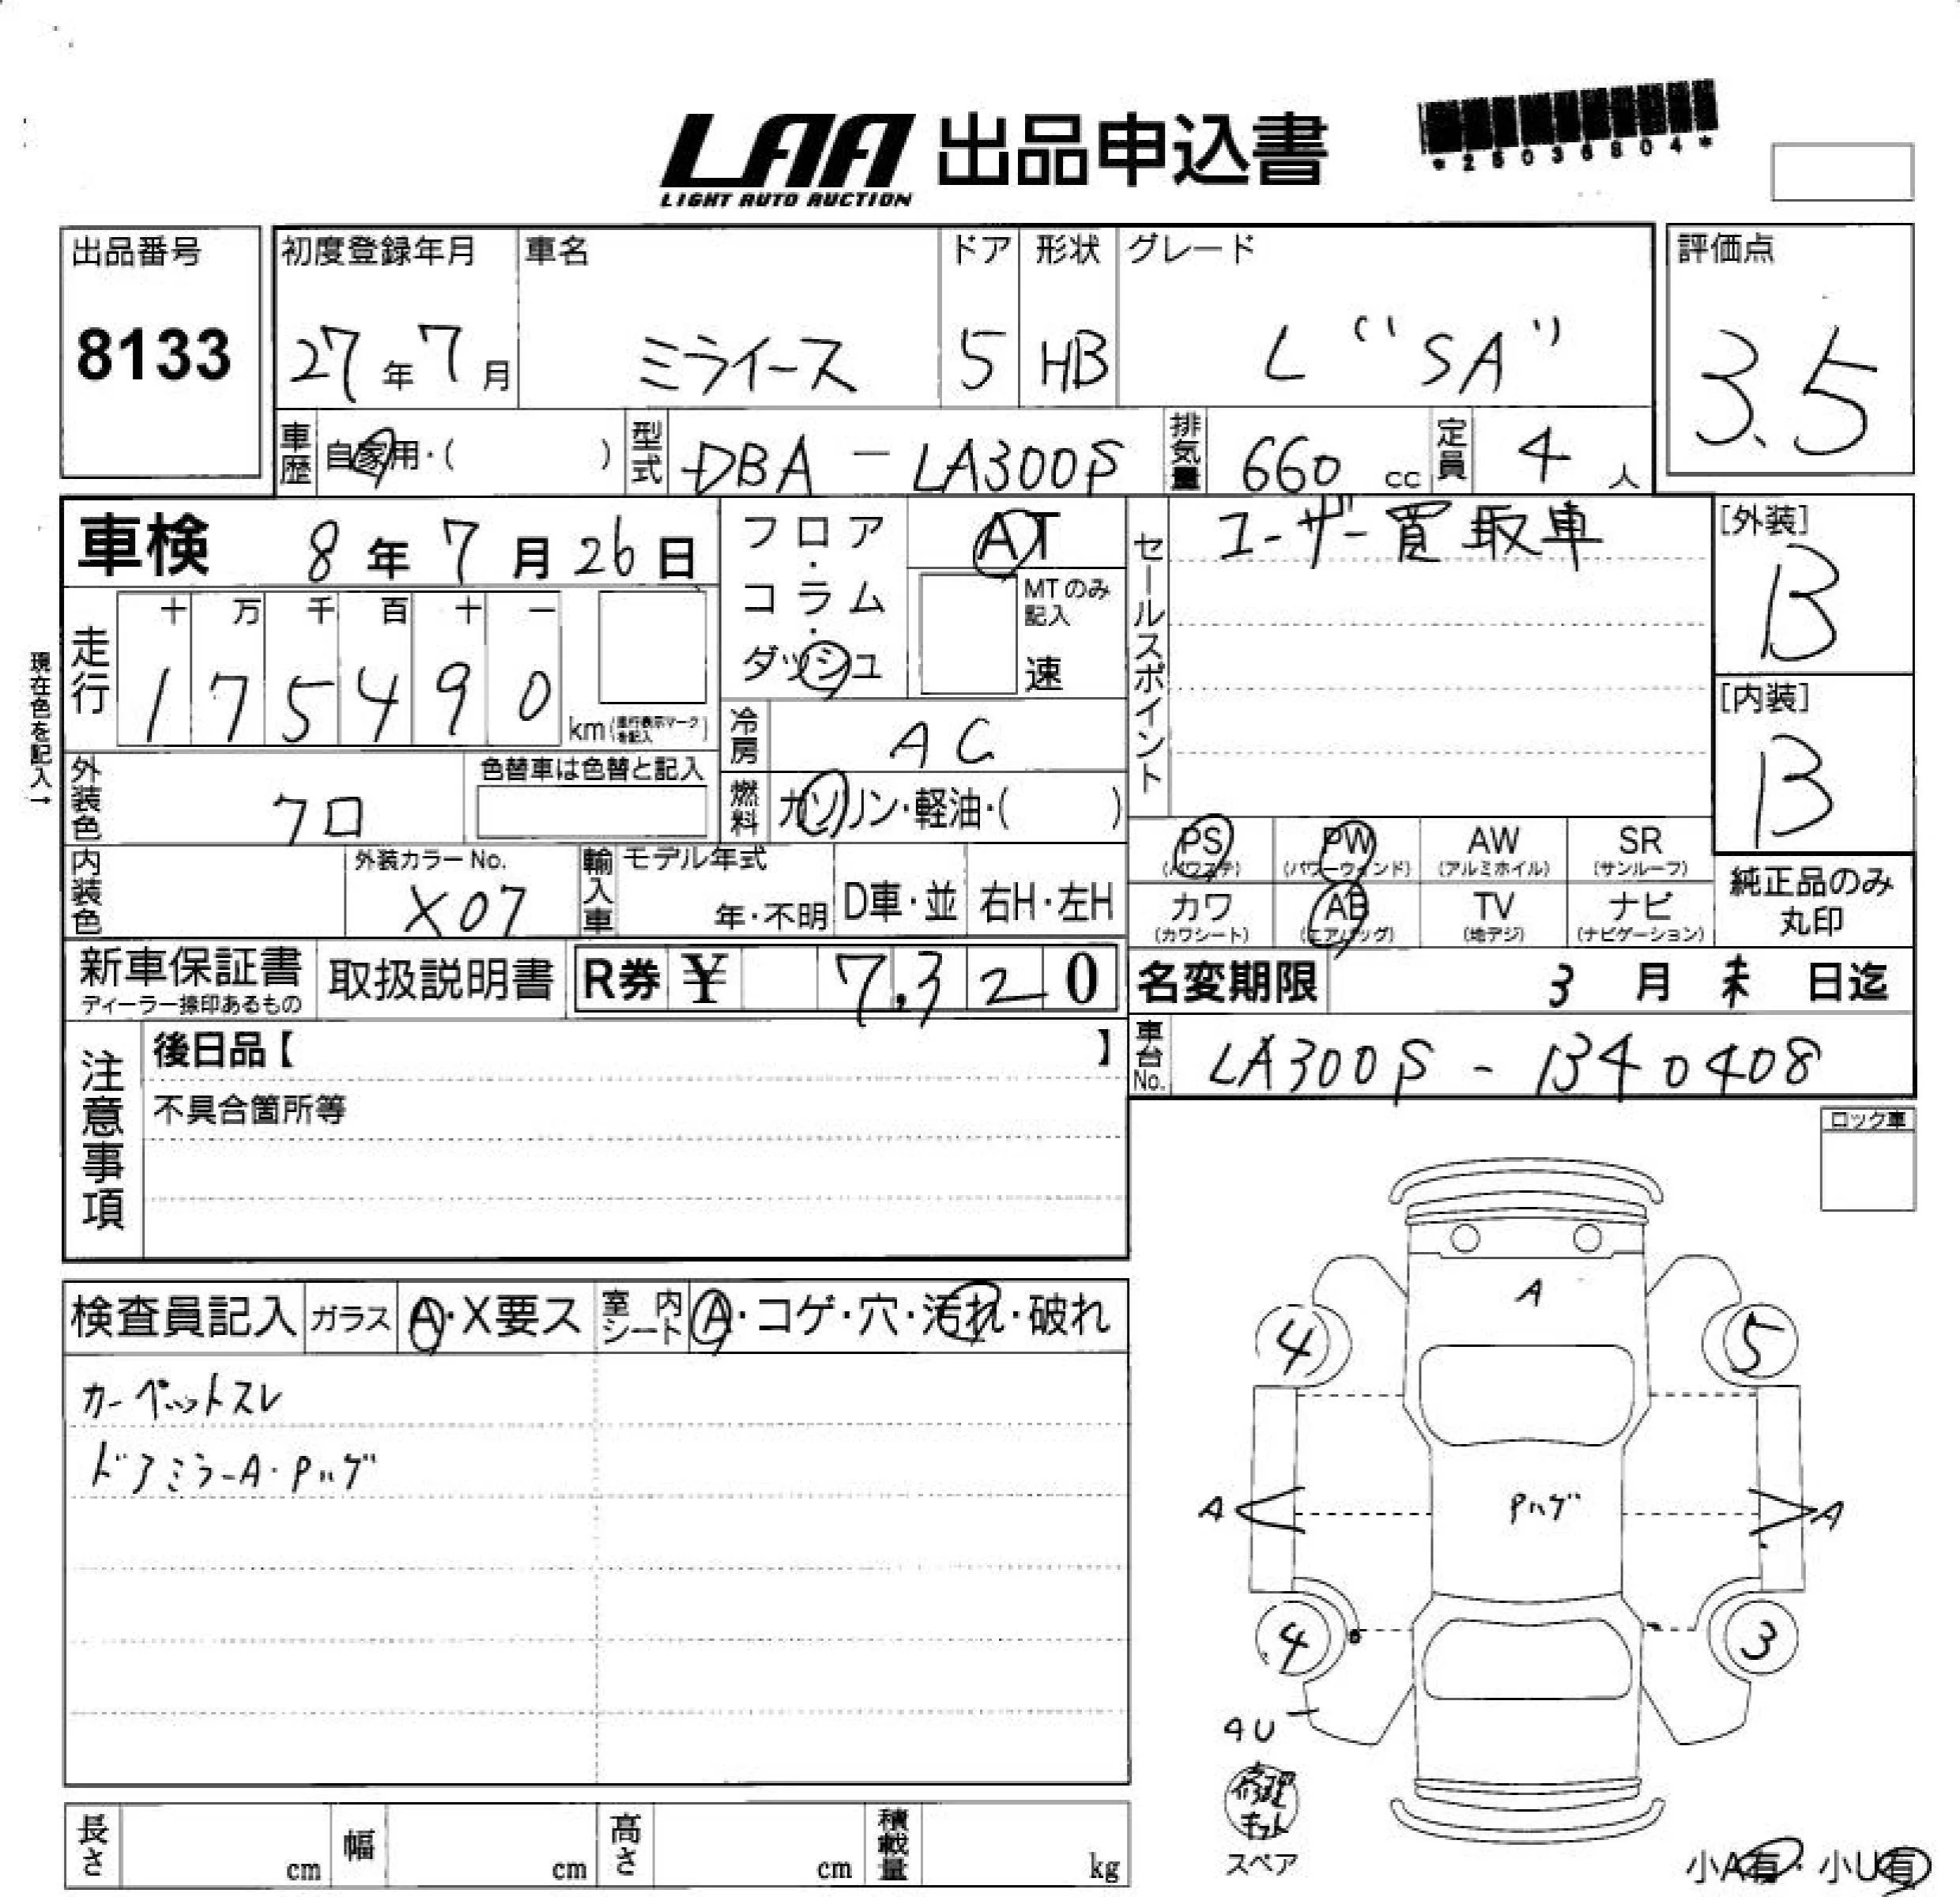 LAA 出品申込書
LIGHT AUTO AUCTION
*25036804*
出品番号
8133
初度登録年月
27年7月
車名
ミライース
ドア
5
形状
HB
グレード
L "SA"
評価点
3.5
車歴
自家用・( )
型式
DBA-LA300S
排気量
660 cc
定員
4 人
車検 8年7月26日
現在色を記入→
走行
十 万 千 百 十 一
1 7 5 4 9 0 km(走行表示マークを記入)
フロア・コラム・ダッシュ
AT
MTのみ記入
速
冷房
AC
燃料
ガソリン・軽油・( )
外装色
クロ
色替車は色替と記入
内装色
外装カラーNo.
X07
輸入車
モデル年式
年・不明
D車・並
右H・左H
セールスポイント
ユーザー買取車
[外装]
B
[内装]
B
PS (パワステ)
PW (パワーウィンド)
AW (アルミホイル)
SR (サンルーフ)
カワ (カワシート)
AB (エアバッグ)
TV (地デジ)
ナビ (ナビゲーション)
純正品のみ
丸印
新車保証書
ディーラー捺印あるもの
取扱説明書
R券 ¥ 7,320
名変期限 3月末日迄
車台No.
LA300S-1340408
注意事項
後日品【 】
不具合箇所等
ロック車
検査員記入
ガラス
A・X要ス
室内シート
A・コゲ・穴・汚れ・破れ
カーペットスレ
ドアミラーA・Pハゲ
A
4
5
A
Pハゲ
A
4
3
4U
修理キット
スペア
小A有・小U有
長さ cm
幅 cm
高さ cm
積載量 kg